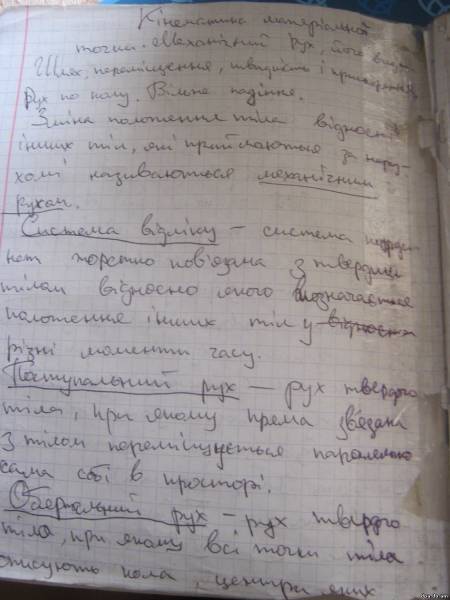 Кінематика матеріальної
точки. Механічний рух, його
Шлях, переміщення, швидкість і прискорення
Рух по колу. Вільне падіння.
Зміна положення тіла відносно
інших тіл, які приймаються за неру-
хомі називаються механічним
рухом.
Система відліку – система коорди-
нат жорстко пов'язана з твердим
тілом відносно якого визначається
положення інших тіл у відносн
різні моменти часу.
Поступальний рух – рух твердого
тіла, при якому пряма звязана
з тілом переміщується паралельно
сама собі в просторі.
Обертальний рух – рух твердого
тіла, при якому всі точки тіла
описують кола, центри яких